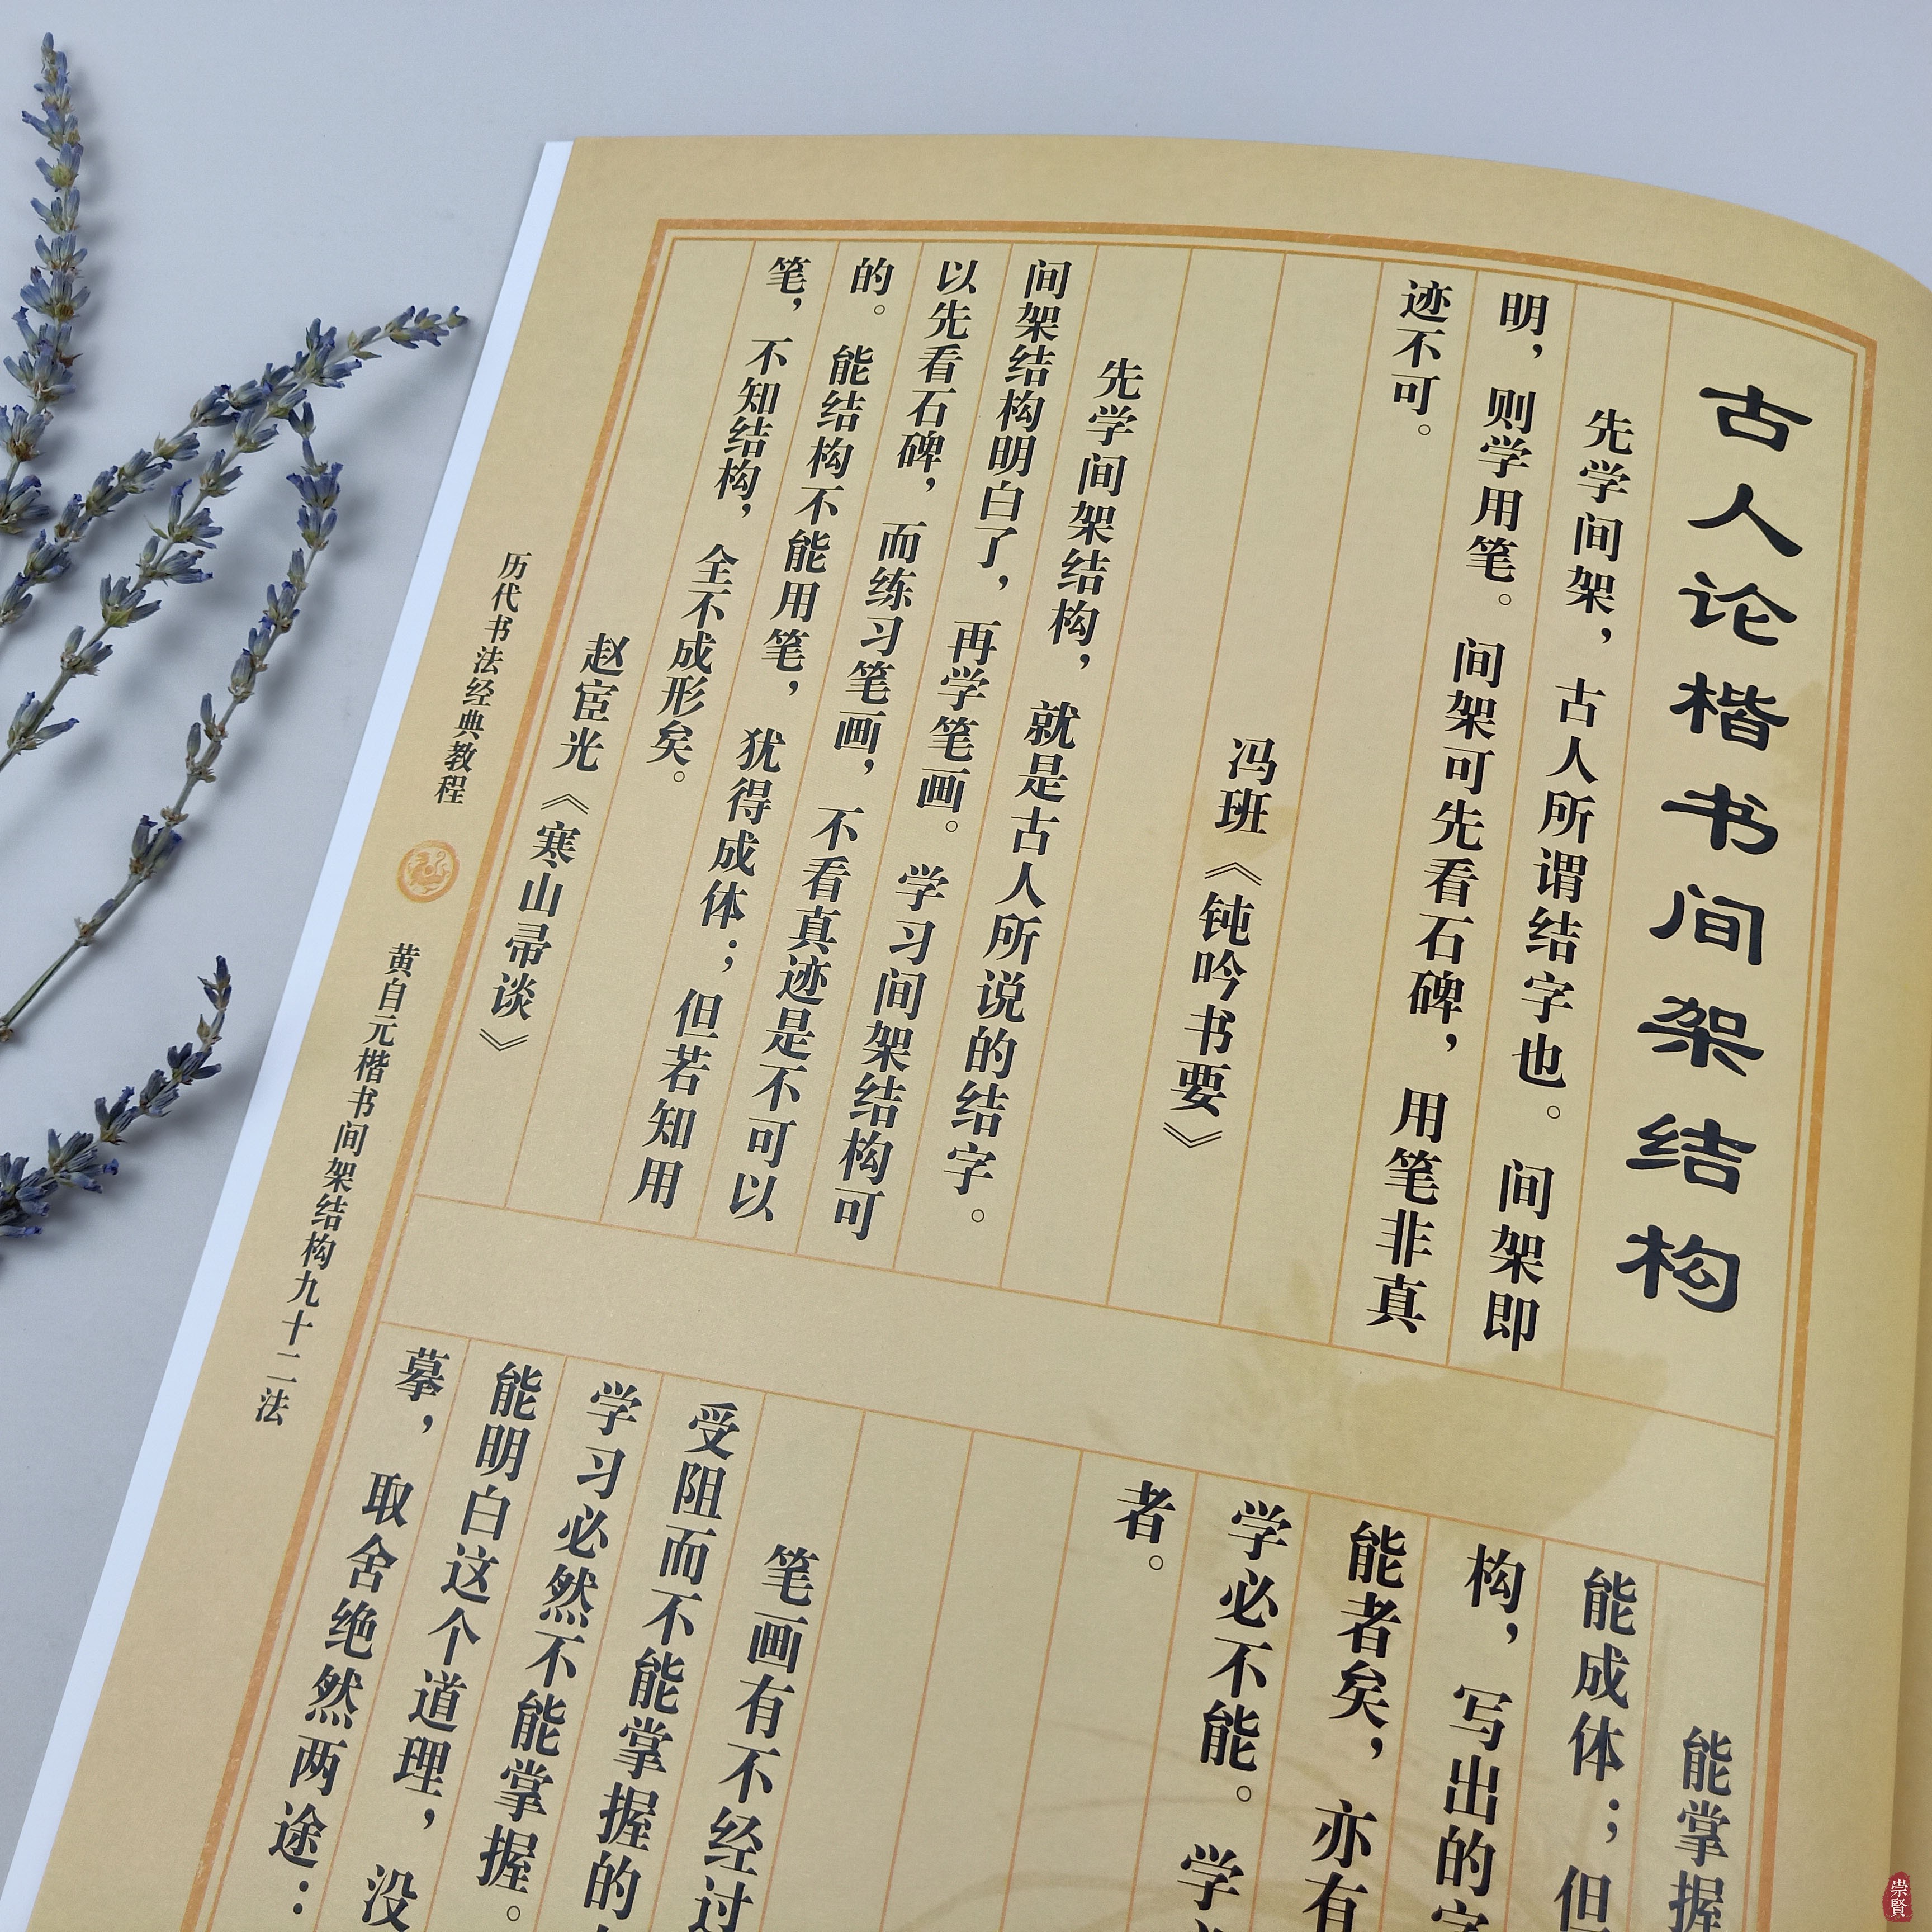 古人论楷书间架结构
先学间架，古人所谓结字也。间架即
明，则学用笔。间架可先看石碑，用笔非真
迹不可。
冯班《钝吟书要》
先学间架结构，就是古人所说的结字。
间架结构明白了，再学笔画。学习间架结构可
以先看石碑，而练习笔画，不看真迹是不可以
的。能结构不能用笔，犹得成体；但若知用
笔，不知结构，全不成形矣。
赵宧光《寒山帚谈》
能掌握
能成体；但
构，写出的字
能者矣，亦有
学必不能。学
者。
笔画有不经过
受阻而不能掌握的
学习必然不能掌握。
能明白这个道理，没
摹，取舍绝然两途：
历代书法经典教程
黄自元楷书间架结构九十二法
崇贤